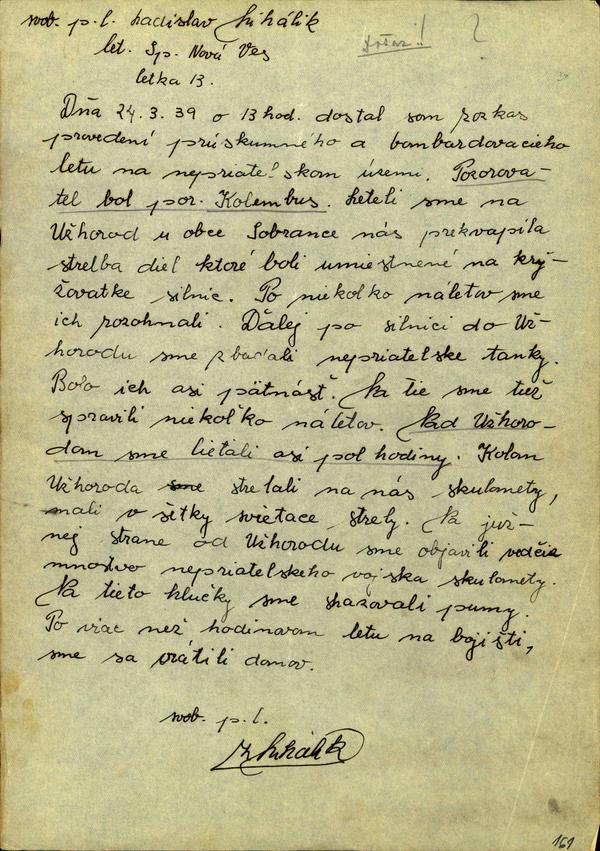 svob. p. l. Ladislav Mihálik
let. Sp. Nová Ves
letka 13.
?
Dňa 24.3.39 o 13 hod. dostal som rozkas
provedení prúskumného a bombardovacieho
letu na nepriateľskom územi. Pozorova-
tel bol por. Kolembus. Leteli sme na
Užhorod u obce Sobrance nás prekvapila
strelba diel ktoré boli umiestnené na kry-
žovatke silnic. Po niekolko náletov sme
ich rozohnali. Ďalej po silnici do Už-
horodu sme zbadali nepriatelske tanky.
Bolo ich asi pätnásť. Na tie sme tiež
spravili niekoľko náletov. Nad Užhoro-
dom sme lietali asi pol hodiny. Kolom
Užhoroda sme strelali na nás skulomety,
mali v šetky svietace strely. Na juž-
nej strane od Užhorodu sme objavili vedčie
mnostvo nepriatelskeho vojska skulomety.
Na tieto klučky sme shazovali pumy.
Po viac než hodinovom letu na bojišti,
sme sa vrátili domov.
svob. p. l.
Mihálik
161